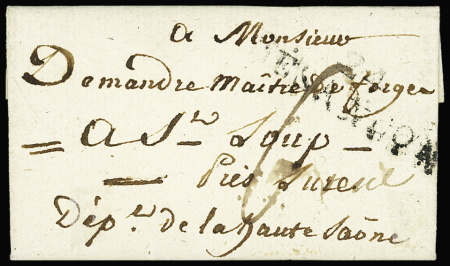 a Monsieur
Demandre Maître de forges
= a St. Loup -
- Près Luxeul
Dépt. de la haute Saône